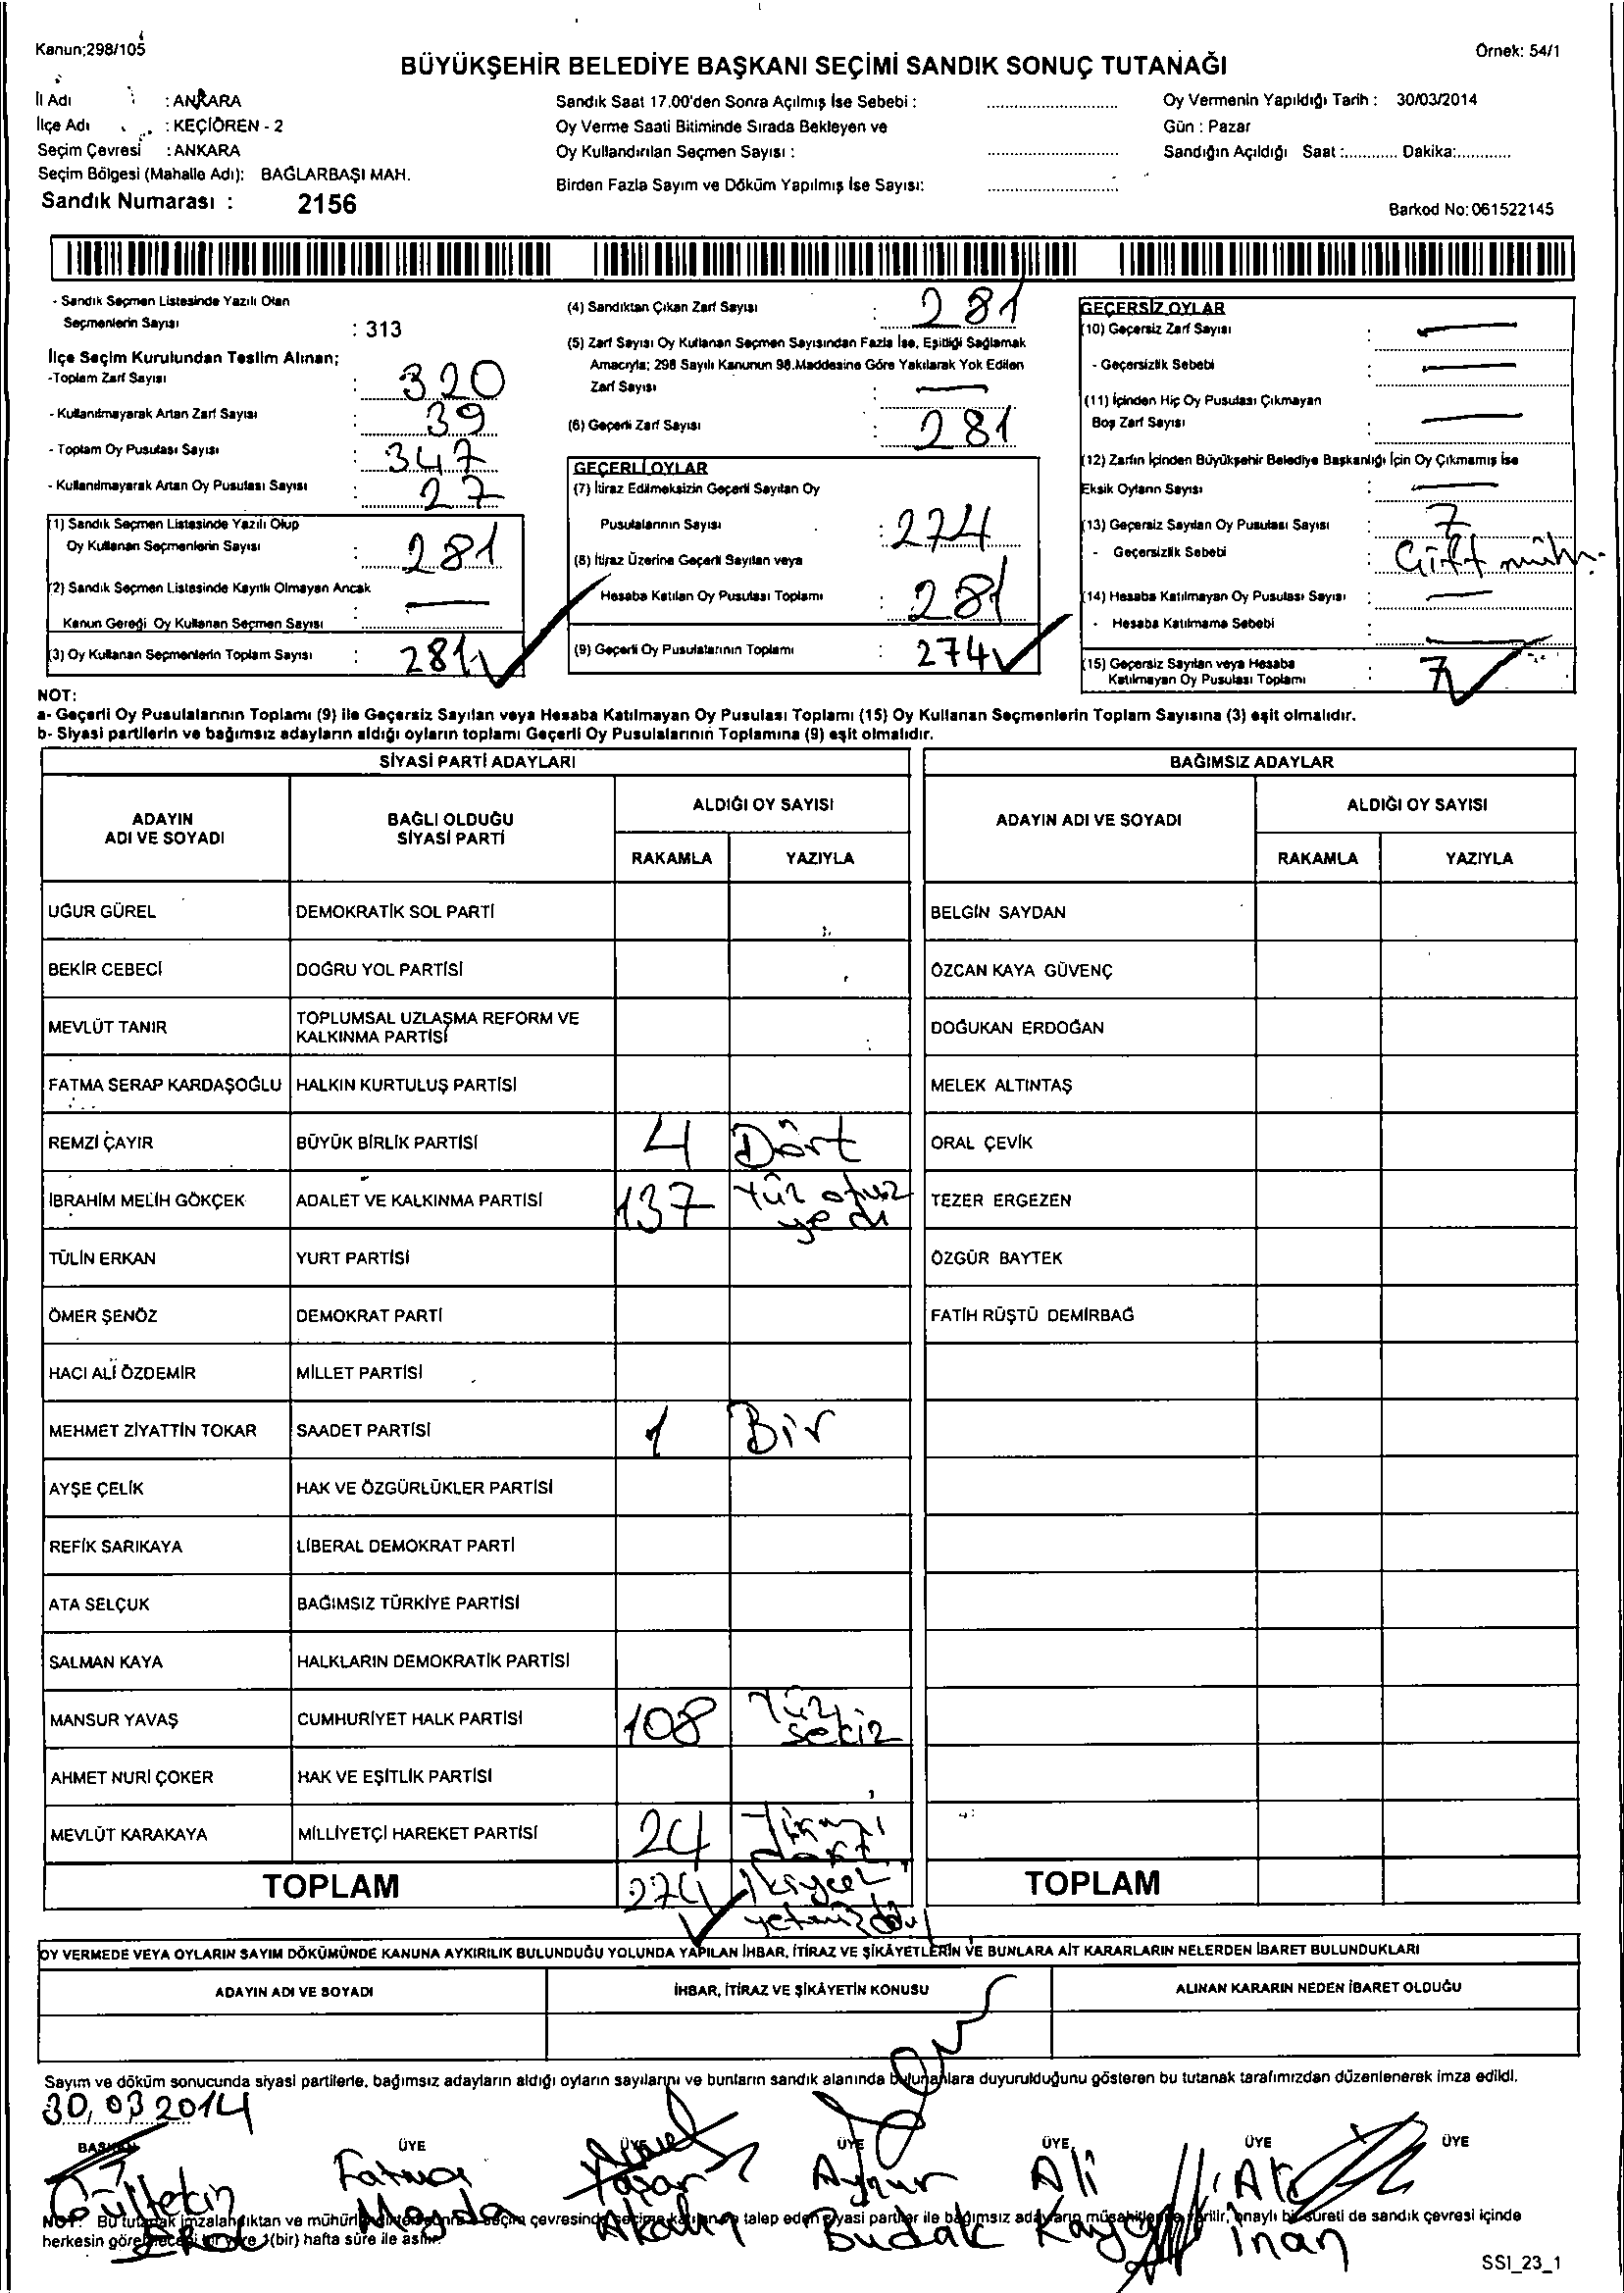 Kanun;298/105
Örnek: 54/1
BÜYÜKŞEHİR BELEDİYE BAŞKANI SEÇİMİ SANDIK SONUÇ TUTANAĞI
İl Adı : ANKARA
İlçe Adı : KEÇİÖREN - 2
Seçim Çevresi : ANKARA
Seçim Bölgesi (Mahalle Adı): BAĞLARBAŞI MAH.
Sandık Numarası : 2156
Sandık Saat 17.00'den Sonra Açılmış İse Sebebi :
Oy Verme Saati Bitiminde Sırada Bekleyen ve
Oy Kullandırılan Seçmen Sayısı :
Birden Fazla Sayım ve Döküm Yapılmış İse Sayısı:
Oy Vermenin Yapıldığı Tarih : 30/03/2014
Gün : Pazar
Sandığın Açıldığı Saat :............ Dakika:............
Barkod No: 061522145
- Sandık Seçmen Listesinde Yazılı Olan
Seçmenlerin Sayısı : 313
İlçe Seçim Kurulundan Teslim Alınan;
-Toplam Zarf Sayısı : 320
- Kullanılmayarak Artan Zarf Sayısı : 39
- Toplam Oy Pusulası Sayısı : 347
- Kullanılmayarak Artan Oy Pusulası Sayısı : 27
(1) Sandık Seçmen Listesinde Yazılı Olup
Oy Kullanan Seçmenlerin Sayısı : 281
(2) Sandık Seçmen Listesinde Kayıtlı Olmayan Ancak
Kanun Gereği Oy Kullanan Seçmen Sayısı : —
(3) Oy Kullanan Seçmenlerin Toplam Sayısı : 281
(4) Sandıktan Çıkan Zarf Sayısı : 281
(5) Zarf Sayısı Oy Kullanan Seçmen Sayısından Fazla İse, Eşitliği Sağlamak
Amacıyla; 298 Sayılı Kanunun 98.Maddesine Göre Yakılarak Yok Edilen
Zarf Sayısı : —
(6) Geçerli Zarf Sayısı : 281
GEÇERLİ OYLAR
(7) İtiraz Edilmeksizin Geçerli Sayılan Oy
Pusulalarının Sayısı : 274
(8) İtiraz Üzerine Geçerli Sayılan veya
Hesaba Katılan Oy Pusulası Toplamı : 281
(9) Geçerli Oy Pusulalarının Toplamı : 274
GEÇERSİZ OYLAR
(10) Geçersiz Zarf Sayısı : —
- Geçersizlik Sebebi : —
(11) İçinden Hiç Oy Pusulası Çıkmayan
Boş Zarf Sayısı : —
(12) Zarfın İçinden Büyükşehir Belediye Başkanlığı İçin Oy Çıkmamış İse
Eksik Oyların Sayısı : —
(13) Geçersiz Sayılan Oy Pusulası Sayısı : 7
- Geçersizlik Sebebi : Çift müh.
(14) Hesaba Katılmayan Oy Pusulası Sayısı : —
- Hesaba Katılmama Sebebi : —
(15) Geçersiz Sayılan veya Hesaba
Katılmayan Oy Pusulası Toplamı : 7
NOT:
a- Geçerli Oy Pusulalarının Toplamı (9) ile Geçersiz Sayılan veya Hesaba Katılmayan Oy Pusulası Toplamı (15) Oy Kullanan Seçmenlerin Toplam Sayısına (3) eşit olmalıdır.
b- Siyasi partilerin ve bağımsız adayların aldığı oyların toplamı Geçerli Oy Pusulalarının Toplamına (9) eşit olmalıdır.
SİYASİ PARTİ ADAYLARI
ADAYIN ADI VE SOYADI BAĞLI OLDUĞU SİYASİ PARTİ ALDIĞI OY SAYISI
RAKAMLA YAZIYLA
UĞUR GÜREL DEMOKRATİK SOL PARTİ
BEKİR CEBECİ DOĞRU YOL PARTİSİ
MEVLÜT TANIR TOPLUMSAL UZLAŞMA REFORM VE KALKINMA PARTİSİ
FATMA SERAP KARDAŞOĞLU HALKIN KURTULUŞ PARTİSİ
REMZİ ÇAYIR BÜYÜK BİRLİK PARTİSİ 4 Dört
İBRAHİM MELİH GÖKÇEK ADALET VE KALKINMA PARTİSİ 137 Yüz otuz yedi
TÜLİN ERKAN YURT PARTİSİ
ÖMER ŞENÖZ DEMOKRAT PARTİ
HACI ALİ ÖZDEMİR MİLLET PARTİSİ
MEHMET ZİYATTİN TOKAR SAADET PARTİSİ 1 Bir
AYŞE ÇELİK HAK VE ÖZGÜRLÜKLER PARTİSİ
REFİK SARIKAYA LİBERAL DEMOKRAT PARTİ
ATA SELÇUK BAĞIMSIZ TÜRKİYE PARTİSİ
SALMAN KAYA HALKLARIN DEMOKRATİK PARTİSİ
MANSUR YAVAŞ CUMHURİYET HALK PARTİSİ 108 Yüz sekiz
AHMET NURİ ÇOKER HAK VE EŞİTLİK PARTİSİ
MEVLÜT KARAKAYA MİLLİYETÇİ HAREKET PARTİSİ 24 Yirmi dört
TOPLAM 274
BAĞIMSIZ ADAYLAR
ADAYIN ADI VE SOYADI ALDIĞI OY SAYISI
RAKAMLA YAZIYLA
BELGİN SAYDAN
ÖZCAN KAYA GÜVENÇ
DOĞUKAN ERDOĞAN
MELEK ALTINTAŞ
ORAL ÇEVİK
TEZER ERGEZEN
ÖZGÜR BAYTEK
FATİH RÜŞTÜ DEMİRBAĞ
TOPLAM
OY VERMEDE VEYA OYLARIN SAYIM DÖKÜMÜNDE KANUNA AYKIRILIK BULUNDUĞU YOLUNDA YAPILAN İHBAR, İTİRAZ VE ŞİKÂYETLERİN VE BUNLARA AİT KARARLARIN NELERDEN İBARET BULUNDUKLARI
ADAYIN ADI VE SOYADI İHBAR, İTİRAZ VE ŞİKÂYETİN KONUSU ALINAN KARARIN NEDEN İBARET OLDUĞU
Sayım ve döküm sonucunda siyasi partilerle, bağımsız adayların aldığı oyların sayılarını ve bunların sandık alanında bulunanlara duyurulduğunu gösteren bu tutanak tarafımızdan düzenlenerek imza edildi.
30.03.2014
BAŞKAN ÜYE ÜYE ÜYE ÜYE ÜYE ÜYE
Gültekin Fatma Yaşar Aynur Ali
Akalın Budak Kaya İnan
NOT: Bu tutanak imzalandıktan ve mühürlendikten sonra seçim çevresinde seçime katılan ve talep eden siyasi partiler ile bağımsız adayların müşahitlerine verilir, onaylı bir sureti de sandık çevresi içinde
herkesin görebileceği bir yere 1(bir) hafta süre ile asılır.
SSI_23_1